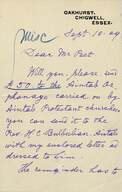 OAKHURST,
CHIGWELL,
ESSEX.
Misc
Sept. 10. 09
Dear Mr Peet
Will you, please, send
£50 to the Aintab Or-
phanage carried on by
Aintab Protestant churches
you can send it to the
Rev. H C Bulbulian. Aintab
with my enclosed letter ad-
dressed to him.
The remainder has to